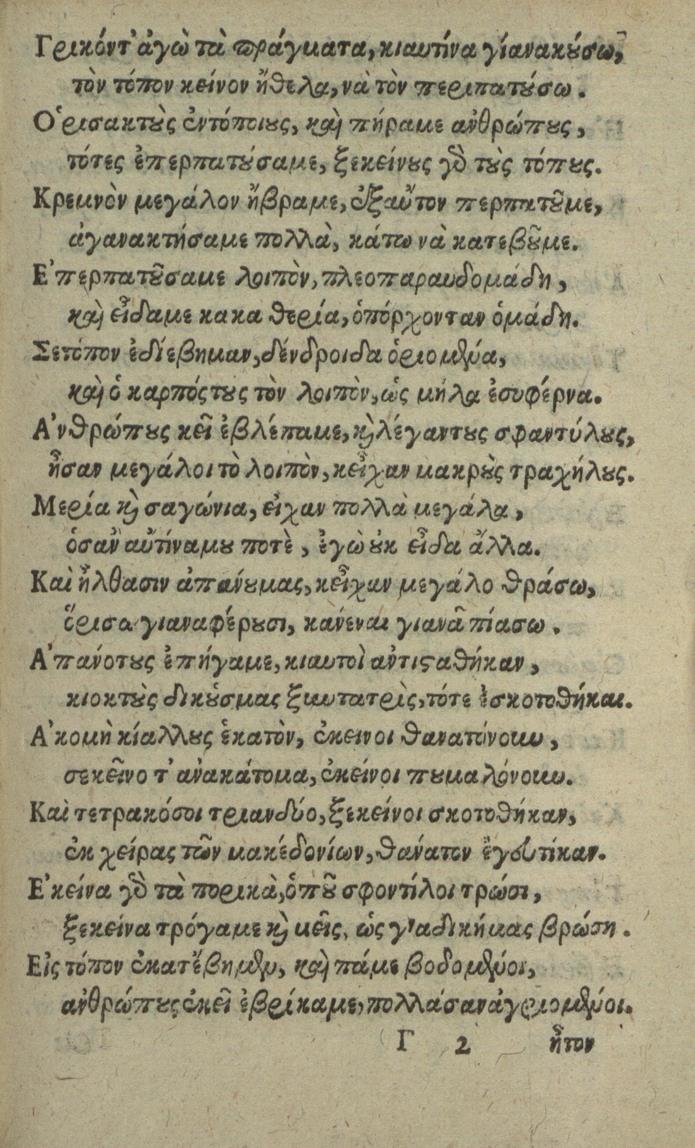 Γρικόντ' ἀγὼ τὰ πράγματα, κιαυτίνα γίανακούσω,
τὸν τόπον κείνον ἤθελα, νὰ τὸν περιπατύσω.
Ὁρισακτοὺς ἐντόπιους, καὶ πήραμε ἀνθρώπους,
τότες ἐπερπατούσαμε, ξεκείνους γὸ τοὺς τόπους.
Κρεμνὸν μεγάλον ἤβραμε, ἐξαὔτον περπατοῦμε,
ἀγανακτήσαμε πολλὰ, κάτω νὰ κατεβοῦμε.
Ἐπερπατοῦσαμε λοιπὸν, πλεοπαραυδομάδη,
καὶ εἶδαμε κακα θερία, ὁπόρχονταν ὁμάδη.
Σετόπον ἐδιέβημαν, δένδροιδα ὁριομένα,
καὶ ὁ καρπόςτους τὸν λοιπὸν, ὡς μήλα ἐσυφέρνα.
Ἀνθρώπους κεῖ ἐβλέπαμε, κὶ λέγαντους σφαντύλους,
ἦσαν μεγάλοι τὸ λοιπὸν, κεἶχαν μακροὺς τραχήλους.
Μερία κὶ σαγώνια, εἶχαν πολλὰ μεγάλα,
ὁσαν αὐτίναμου ποτὲ, ἐγὼ οὐκ εἶδα ἄλλα.
Καὶ ἦλθασιν ἀπανουμας, κεἶχαν μεγάλο θράσω,
ὅρισα γιαναφέρουσι, κανέναι γιανὰ πίασω.
Ἀπανοτους ἐπήγαμε, κιαυτοὶ ἀντισταθήκαν,
κιοκτοὺς δικούσμας ξηωτατρὶς, τότε ἐσκοτοθήκαι.
Ἀκομὴ κίαλλους ἑκατὸν, ἐκεινοι θανατόνουν,
σεκεῖνο τ' ἀνακάτομα, ἐκείνοι πυμαλόνουν.
Καὶ τετρακόσοι τριανδύο, ξεκείνοι σκοτοθήκαν,
ἐκ χείρας τῶν μακέδονίων, θάνατον ἐγευτίκαν.
Ἐκείνα γὸ τὰ πορικὰ, ὁποῦ σφοντίλοι τρώσι,
ξεκείνα τρόγαμε κὶ μεῖς, ὡς γ'αδικήμας βρώση.
Εἰς τόπον ἐκατέβημεν, καὶ πάμε βοδομένοι,
ἀνθρώπους ἐκεῖ ἐβρίκαμε, πολλάσαν ἀγριομένοι.
Γ 2 ἦτον